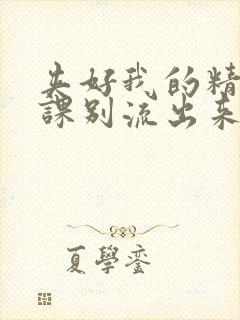 夹好我的精
課别流出来
夏學銮